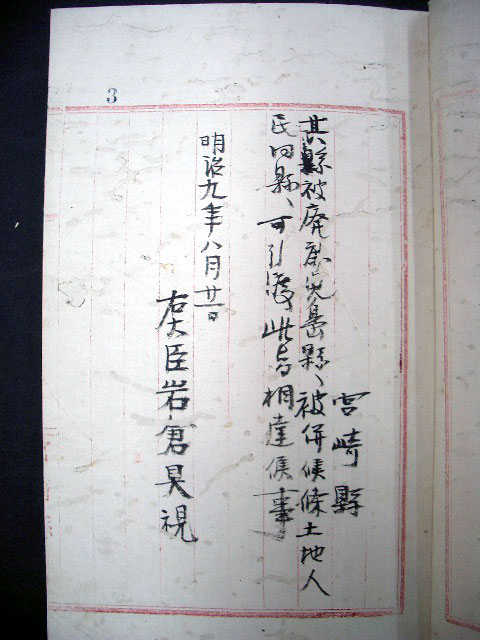 3
宮崎縣
其縣被廃鹿児島縣ヘ被併候條土地人
民同縣ヘ可引渡此旨相達候事
明治九年八月廿一日
右大臣岩倉具視